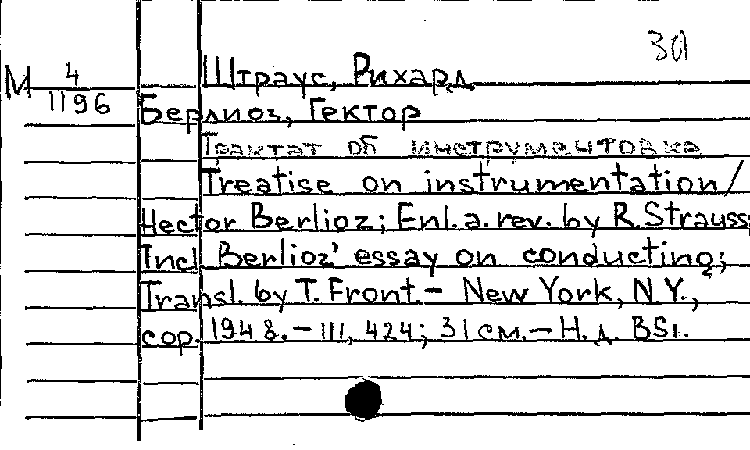 30
Штраус, Рихард
М 4/1196
Берлиоз, Гектор
Трактат об инструментовке
Treatise on instrumentation/
Hector Berlioz; Enl. a. rev. by R. Strauss;
Incl. Berlioz' essay on conducting;
Transl. by T. Front. – New York, N.Y.,
cop. 1948. – III, 424; 31 см. – Н. д. BSI.